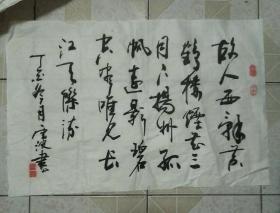 故人西辭黃
鶴樓煙花三
月下揚州孤
帆遠影碧
空盡唯見長
江天際流
丁亥冬月 書